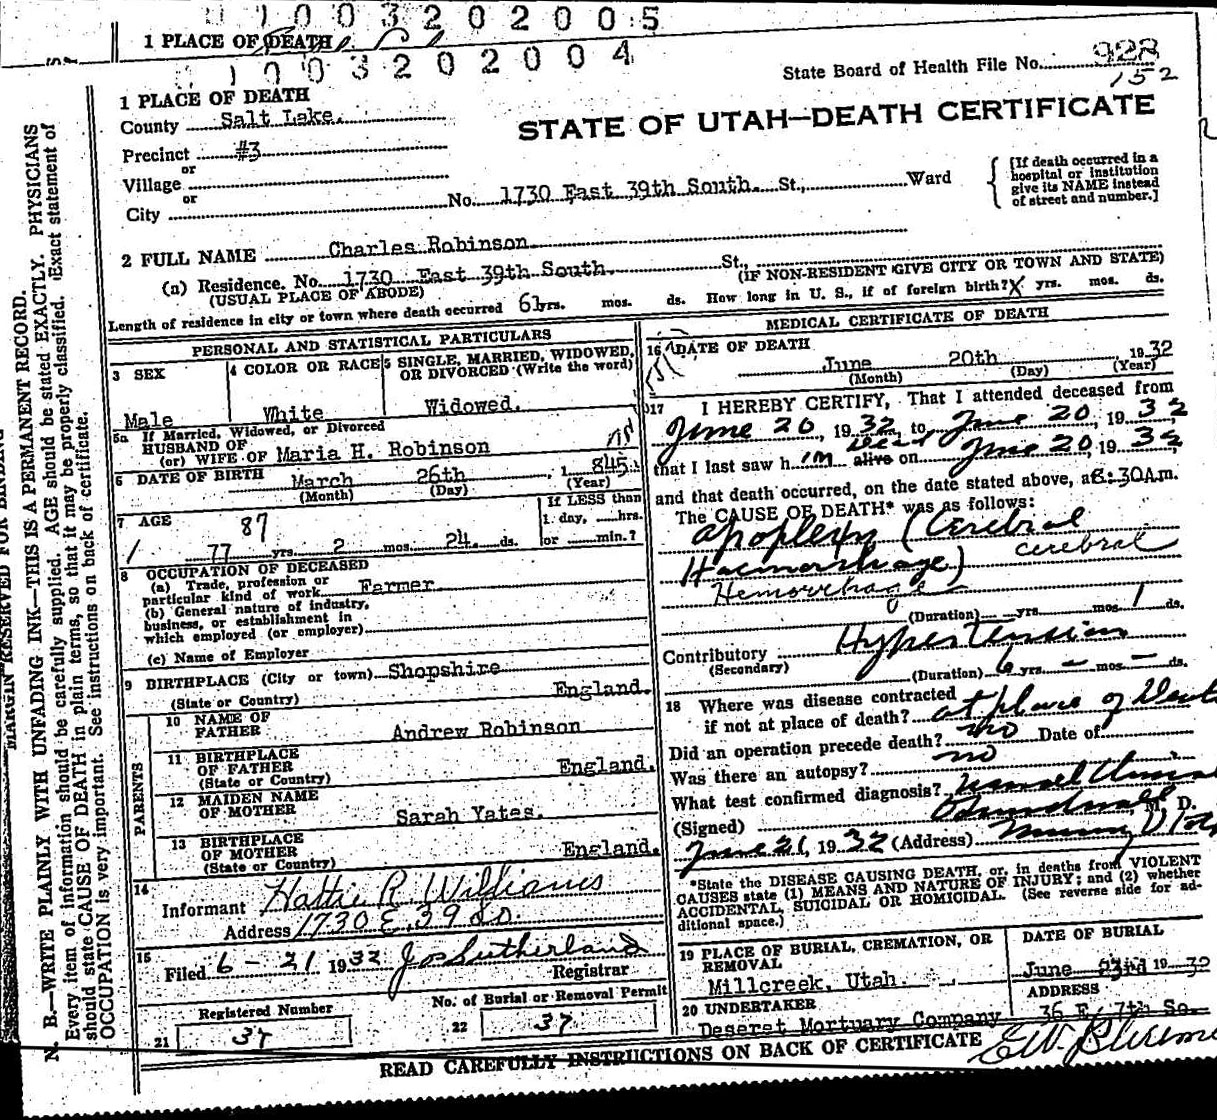 1 0 0 3 2 0 2 0 0 5
1 PLACE OF DEATH
1 0 0 3 2 0 2 0 0 4
State Board of Health File No. 928
152
1 PLACE OF DEATH
County Salt Lake.
STATE OF UTAH—DEATH CERTIFICATE
Precinct #3
or
Village
or
City
No. 1730 East 39th South. St., Ward
[If death occurred in a
hospital or institution
give its NAME instead
of street and number.]
2 FULL NAME Charles Robinson
(a) Residence. No. 1730 East 39th South. St.,
(USUAL PLACE OF ABODE)
(IF NON-RESIDENT GIVE CITY OR TOWN AND STATE)
Length of residence in city or town where death occurred 61 yrs. mos. ds. How long in U. S., if of foreign birth? X yrs. mos. ds.
PERSONAL AND STATISTICAL PARTICULARS
3 SEX
Male
4 COLOR OR RACE
White
5 SINGLE, MARRIED, WIDOWED,
OR DIVORCED (Write the word)
Widowed.
5a If Married, Widowed, or Divorced
HUSBAND OF
(or) WIFE OF Maria H. Robinson
6 DATE OF BIRTH March 26th 1 845
(Month) (Day) (Year)
7 AGE
87
77 yrs. 2 mos. 24 ds.
If LESS than
1 day, hrs.
or min.?
8 OCCUPATION OF DECEASED
(a) Trade, profession or
particular kind of work Farmer
(b) General nature of industry,
business, or establishment in
which employed (or employer)
(c) Name of Employer
9 BIRTHPLACE (City or town) Shopshire
(State or Country) England.
PARENTS
10 NAME OF
FATHER Andrew Robinson
11 BIRTHPLACE
OF FATHER
(State or Country) England.
12 MAIDEN NAME
OF MOTHER Sarah Yates.
13 BIRTHPLACE
OF MOTHER
(State or Country) England.
14
Informant Hattie R. Williams
Address 1730 E. 39 So.
15
Filed 6-21 1932 Jos Sutherland
Registrar
Registered Number
21 37
No. of Burial or Removal Permit
22 37
MEDICAL CERTIFICATE OF DEATH
16 DATE OF DEATH
June 20th, 1932
(Month) (Day) (Year)
17 I HEREBY CERTIFY, That I attended deceased from
June 20, 1932, to June 20, 1932
Dead
that I last saw him alive on June 20, 1932,
and that death occurred, on the date stated above, at 6:30 A.m.
The CAUSE OF DEATH* was as follows:
Apoplexy (Cerebral
Haemorrhage) cerebral
Hemorrhage
(Duration) yrs. mos. 1 ds.
Contributory Hypertension
(Secondary)
(Duration) 6 yrs. – mos. – ds.
18 Where was disease contracted
if not at place of death? at place of Death
Did an operation precede death? no Date of
Was there an autopsy? no
What test confirmed diagnosis?
(Signed) M. D.
June 21, 1932 (Address) Murray Utah
*State the DISEASE CAUSING DEATH, or, in deaths from VIOLENT
CAUSES state (1) MEANS AND NATURE OF INJURY; and (2) whether
ACCIDENTAL, SUICIDAL OR HOMICIDAL. (See reverse side for ad-
ditional space.)
19 PLACE OF BURIAL, CREMATION, OR
REMOVAL
Millcreek, Utah
DATE OF BURIAL
June 23rd 1932
20 UNDERTAKER
Deseret Mortuary Company
ADDRESS
36 E. 7th So.
READ CAREFULLY INSTRUCTIONS ON BACK OF CERTIFICATE
MARGIN RESERVED FOR BINDING
N. B.—WRITE PLAINLY WITH UNFADING INK—THIS IS A PERMANENT RECORD.
Every item of information should be carefully supplied. AGE should be stated EXACTLY. PHYSICIANS
should state CAUSE OF DEATH in plain terms, so that it may be properly classified. Exact statement of
OCCUPATION is very important. See instructions on back of certificate.